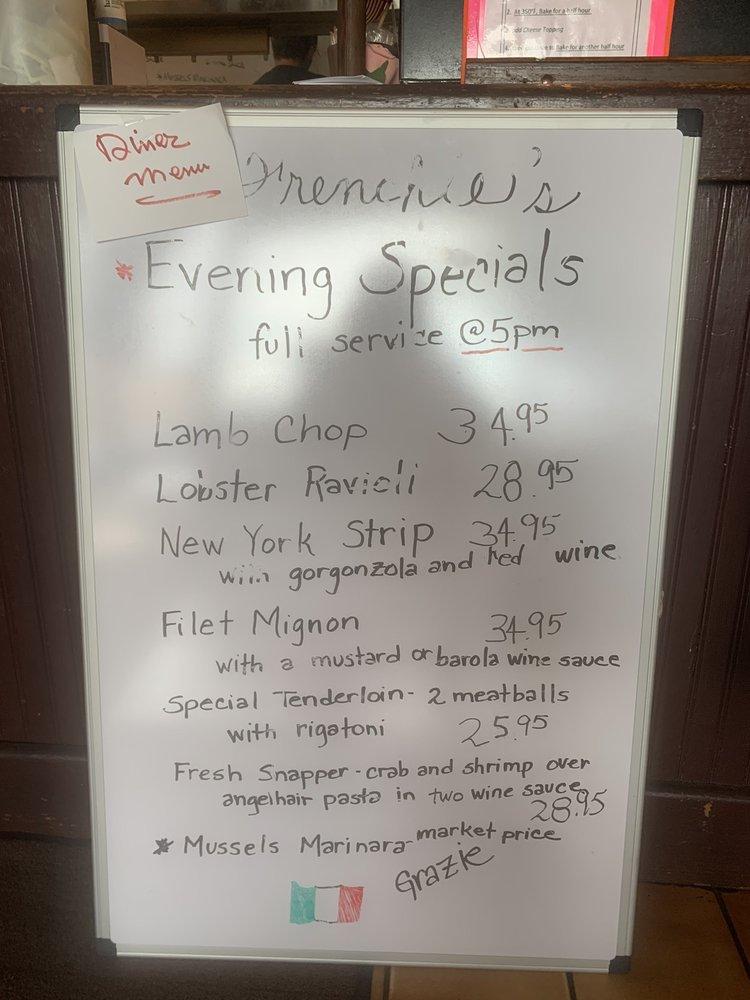 2. At 350°F, Bake for a half hour
3. Add Cheese Topping
MUSSELS MARINARA
Diner
menu
Frenchie's
* Evening Specials
full service @5pm
Lamb Chop 34.95
Lobster Ravioli 28.95
New York Strip 34.95
with gorgonzola and red wine
Filet Mignon 34.95
with a mustard or barola wine sauce
Special Tenderloin - 2 meatballs
with rigatoni 25.95
Fresh Snapper - crab and shrimp over
angelhair pasta in two wine sauce
28.95
* Mussels Marinara - market price
Grazie